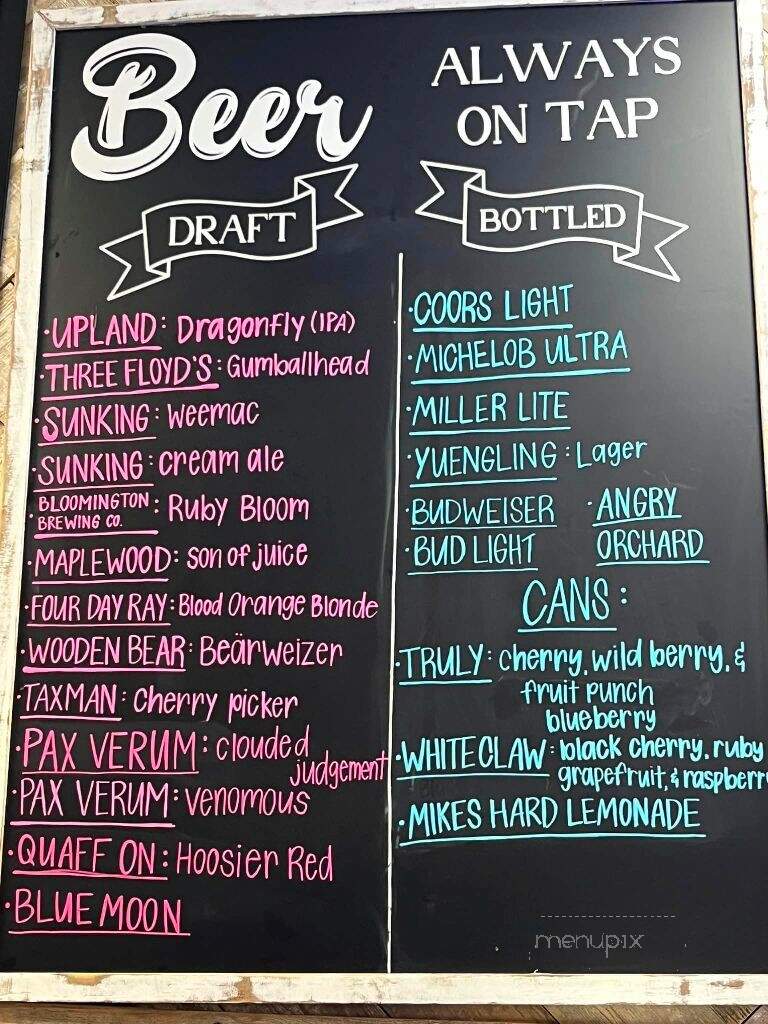 Beer
DRAFT
·UPLAND: Dragonfly (IPA)
·THREE FLOYD'S: Gumballhead
·SUNKING: weemac
·SUNKING: cream ale
·BLOOMINGTON
BREWING CO.: Ruby Bloom
·MAPLEWOOD: son of juice
·FOUR DAY RAY: Blood Orange Blonde
·WOODEN BEAR: Beärweizer
·TAXMAN: Cherry picker
·PAX VERUM: clouded
judgement
·PAX VERUM: venomous
·QUAFF ON: Hoosier Red
·BLUE MOON
ALWAYS
ON TAP
BOTTLED
·COORS LIGHT
·MICHELOB ULTRA
·MILLER LITE
·YUENGLING: Lager
·BUDWEISER ·ANGRY
·BUD LIGHT ORCHARD
CANS:
·TRULY: cherry, wild berry, &
fruit punch
blueberry
·WHITECLAW: black cherry, ruby
grapefruit, & raspberr
·MIKES HARD LEMONADE
menupix